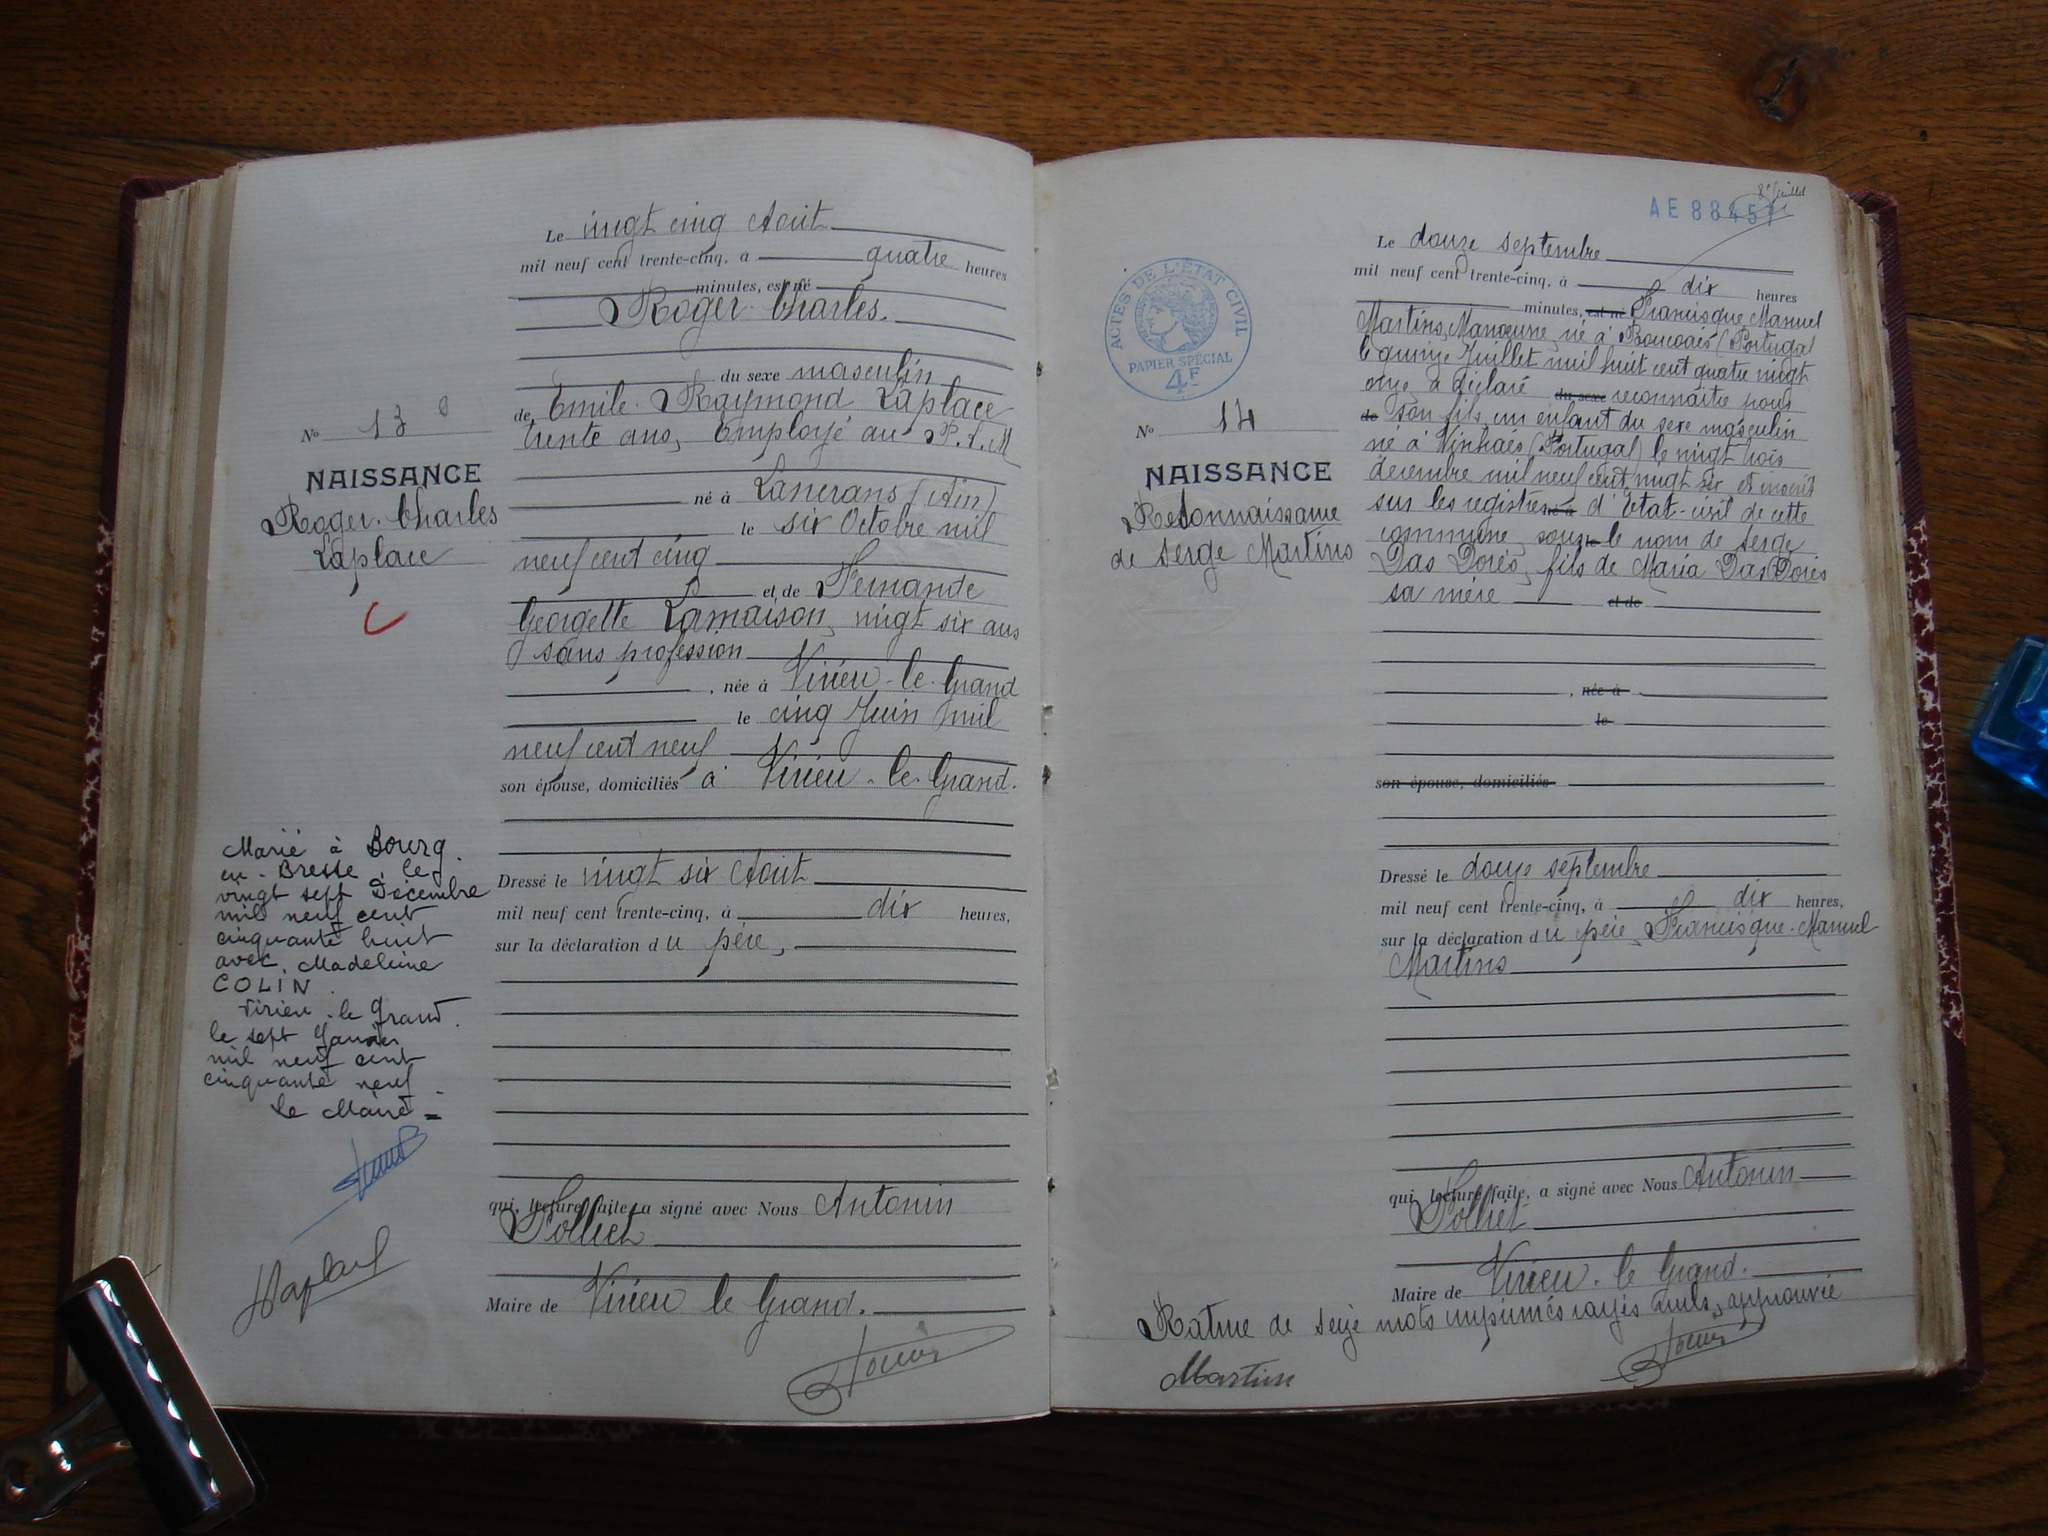 Le vingt cinq Août
mil neuf cent trente-cinq, à quatre heures
minutes, est né
Roger Charles.
du sexe masculin
de Emile Raymond Laplace
trente ans, Employé au P.L.M
né à Lancrans (Ain)
le six Octobre mil
neuf cent cinq
et de Fernande
Georgette Lamaison, vingt six ans
sans profession
, née à Virieu-le-Grand
le cinq Juin mil
neuf cent neuf
son épouse, domiciliés à Virieu-le-Grand.
Dressé le vingt six Août
mil neuf cent trente-cinq, à dix heures,
sur la déclaration du père,
qui, lecture faite, a signé avec Nous Antonin
Maire de Virieu le Grand.
N° 13
NAISSANCE
Roger Charles
Laplace
Marié à Bourg
en-Bresse le
vingt sept Décembre
mil neuf cent
cinquante huit
avec Madeleine
COLIN.
Virieu le grand.
le sept Janvier
mil neuf cent
cinquante neuf
Le Maire =
Laplace
AE 88457
Le douze septembre
mil neuf cent trente-cinq, à dix heures
minutes, est né Francisque Manuel
Martins, Manœuvre, né à (Portugal
le quinze Juillet mil huit cent quatre vingt
onze, a déclaré du sexe reconnaître pour
de son fils, un enfant du sexe masculin
né à Vinhaés (Portugal) le vingt trois
décembre mil neuf cent vingt six et inscrit
sur les registres né à d'Etat-civil de cette
commune, sous le le nom de Serge
Das Dorés, fils de Maria Das Dorés
sa mère et de
, née à
le
son épouse, domiciliés
Dressé le douze septembre
mil neuf cent trente-cinq, à dix heures,
sur la déclaration du père, Francisque-Manuel
Martins
qui, lecture faite, a signé avec Nous Antonin
Maire de Virieu-le Grand.
Rature de seize mots imprimés rayés nuls, approuvée
Martins
ACTES DE L'ÉTAT CIVIL
PAPIER SPÉCIAL
4F
N° 14
NAISSANCE
Reconnaissance
de Serge Martins